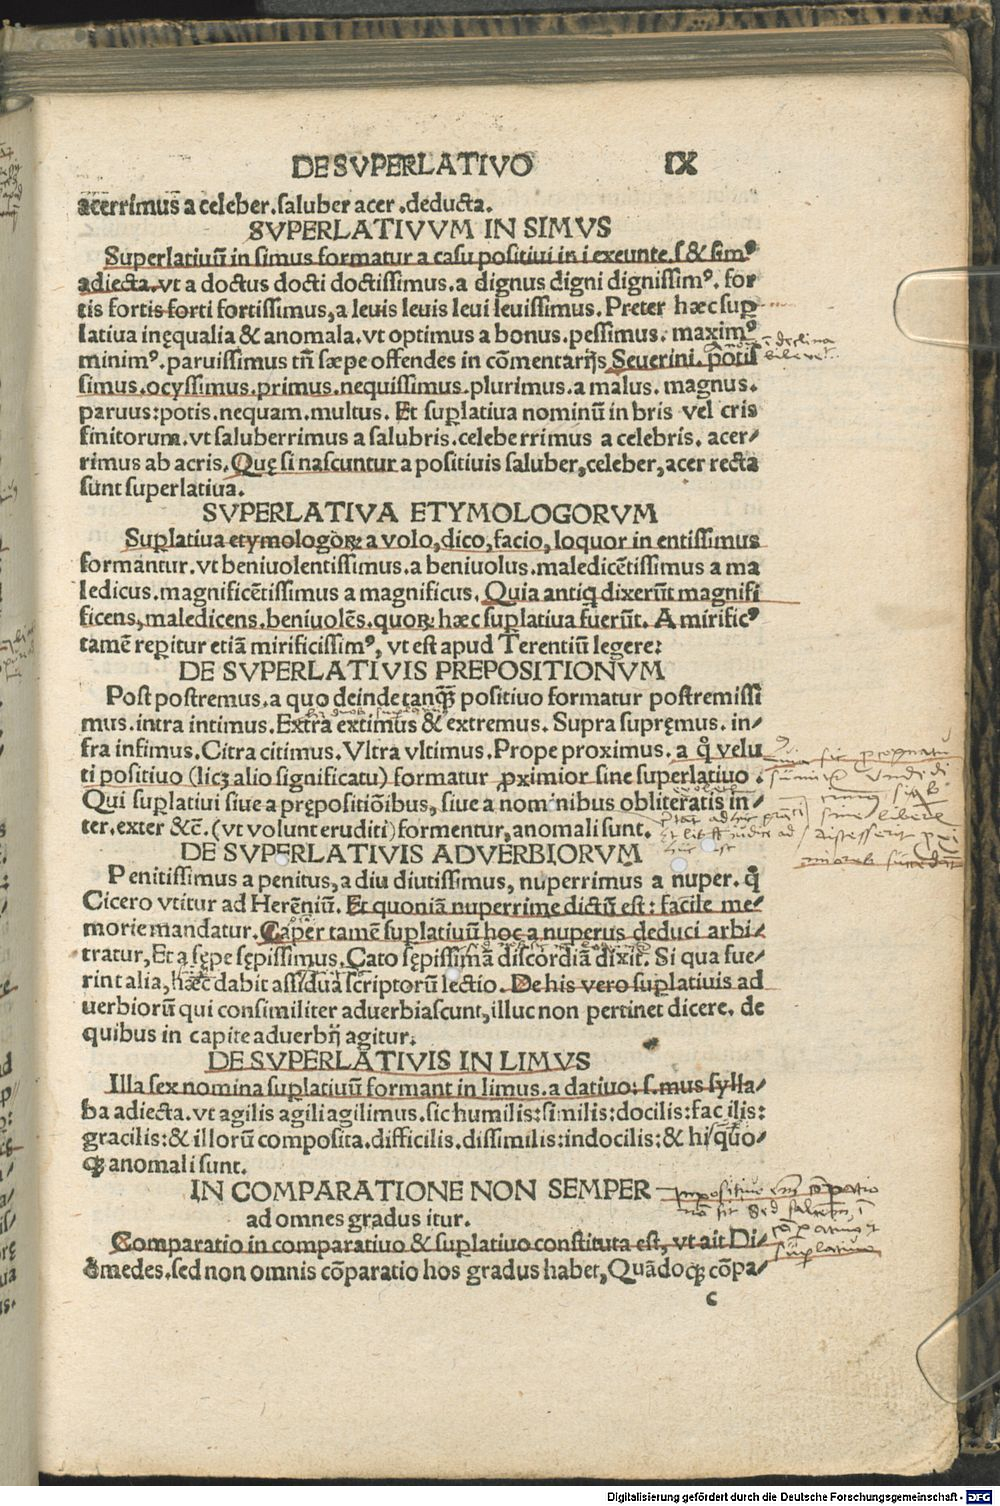 DE SVPERLATIVO IX
acerrimus a celeber.saluber acer .deducta.
SVPERLATIVVM IN SIMVS
Superlatiuū in simus formatur a casu positiui in i exeunte.s & simꝰ
adiecta.vt a doctus docti doctissimus.a dignus digni dignissimꝰ. for
tis fortis forti fortissimus,a leuis leuis leui leuissimus. Preter hæc suꝑ
latiua inęqualia & anomala.vt optimus a bonus.pessimus. maximꝰ
minimꝰ.paruissimus tñ sæpe offendes in cōmentarijs Seuerini. potis
simus.ocyssimus.primus.nequissimus.plurimus.a malus. magnus.
paruus:potis.nequam.multus. Et suꝑlatiua nominū in bris vel cris
finitorum.vt saluberrimus a salubris.celeberrimus a celebris. acer/
rimus ab acris.Quę si nascuntur a positiuis saluber,celeber,acer recta
sunt superlatiua.
SVPERLATIVA ETYMOLOGORVM
Suꝑlatiua etymologoꝝ a volo,dico,facio,loquor in entissimus
formantur.vt beniuolentissimus.a beniuolus.maledicētissimus a ma
ledicus.magnificētissimus a magnificus. Quia antiq̇ dixerūt magnifi
ficens,maledicens.beniuolēs.quoꝝ hæc suꝑlatiua fuerūt. A mirificꝰ
tamē reꝑitur etiā mirificissimꝰ, vt est apud Terentiū legere:
DE SVPERLATIVIS PREPOSITIONVM
Post postremus.a quo deinde tanꝗ̃ positiuo formatur postremissi
mus.intra intimus.Extra extimus & extremus. Supra supręmus. in/
fra infimus.Citra citimus.Vltra vltimus.Prope proximus. a q̊ velu
ti positiuo (licꝫ alio significatu) formatur ꝓximior sine superlatiuo .
Qui suꝑlatiui siue a prępositiōibus, siue a nominibus obliteratis in/
ter.exter &c̄. (vt volunt eruditi) formentur,anomali sunt.
DE SVPERLATIVIS ADVERBIORVM
Penitissimus a penitus,a diu diutissimus, nuperrimus a nuper. q̊
Cicero vtitur ad Herēniū. Et quoniā nuperrime dictū est: facile me/
morie mandatur. Caper tamē suꝑlatiuū hoc a nuperus deduci arbi/
tratur,Et a sępe sępissimus. Cato sępissimā discordiā dixit. Si qua fue/
rint alia, hæc dabit assidua scriptorū lectio. De his vero suꝑlatiuis ad
uerbiorū qui consimiliter aduerbiascunt,illuc non pertinet dicere. de
quibus in capite aduerbij agitur.
DE SVPERLATIVIS IN LIMVS
Illa sex nomina suꝑlatiuū formant in limus.a datiuo: s.mus sylla/
ba adiecta.vt agilis agili agilimus.sic humilis:similis:docilis:facilis:
gracilis:& illorū composita.difficilis.dissimilis:indocilis:& hi quo/
qꝫ anomali sunt.
IN COMPARATIONE NON SEMPER
ad omnes gradus itur.
Comparatio in comparatiuo & suꝑlatiuo constituta est, vt ait Di/
omedes.sed non omnis cōparatio hos gradus habet, Quādoqꝫ cōpa/
c
Digitalisierung gefördert durch die Deutsche Forschungsgemeinschaft - DFG